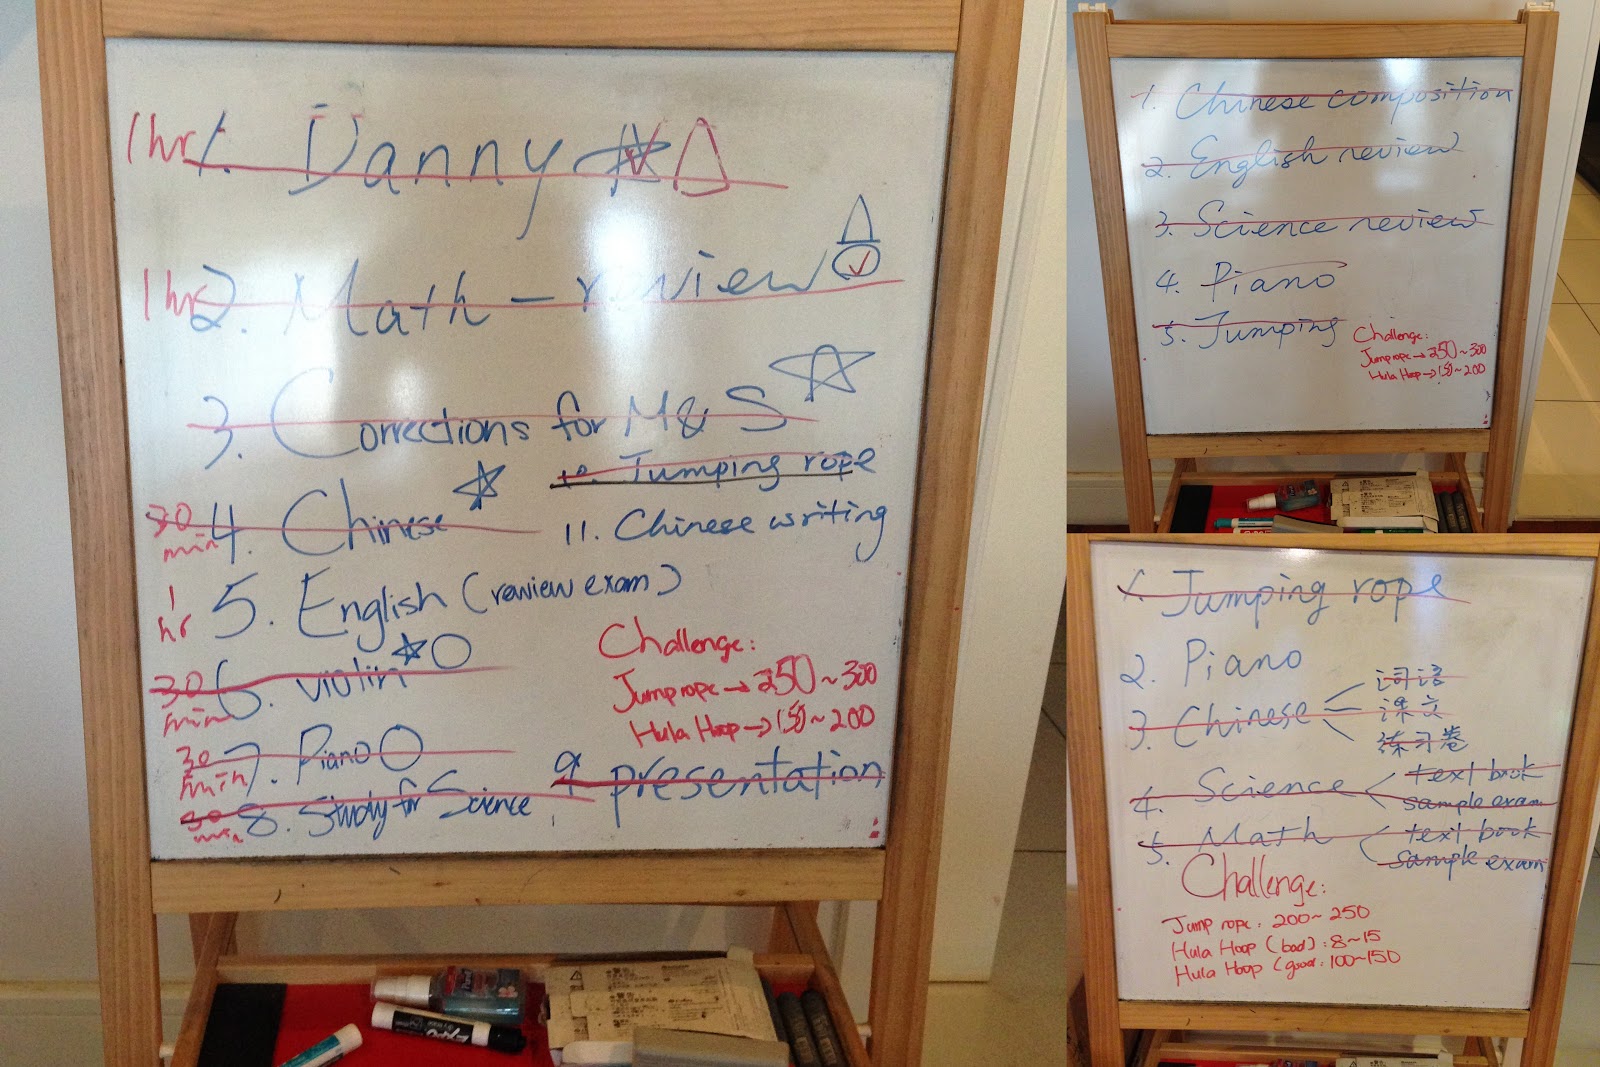 1hr 1. Danny
1hr 2. Math - review
3. Corrections for M & S
30 min 4. Chinese
1 hr 5. English (review exam)
30 min 6. violin
30 min 7. Piano
30 min 8. Study for Science
9. presentation
10. Jumping rope
11. Chinese writing
Challenge:
Jump rope → 250 ~ 300
Hula Hoop → 150 ~ 200
EXPO
1. Chinese composition
2. English review
3. Science review
4. Piano
5. Jumping
Challenge:
Jump rope → 250 ~ 300
Hula Hoop → 150 ~ 200
1. Jumping rope
2. Piano
3. Chinese
词语
课文
练习卷
4. Science
text book
sample exam
5. Math
text book
sample exam
Challenge:
Jump rope: 200 ~ 250
Hula Hoop (bad): 8 ~ 15
Hula Hoop (good: 100 ~ 150